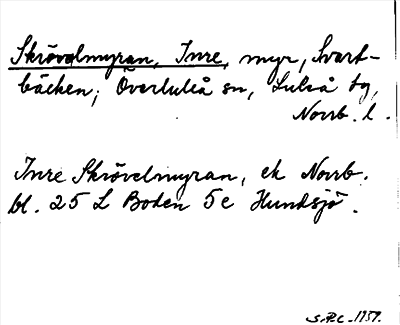 Skrövelmyran, Inre, myr, Svart-
bäcken; Överluleå sn, Luleå tg,
Norrb. l.
Inre Skrövelmyran, ek Norrb.
bl. 25 L Boden 5e Hundsjö.